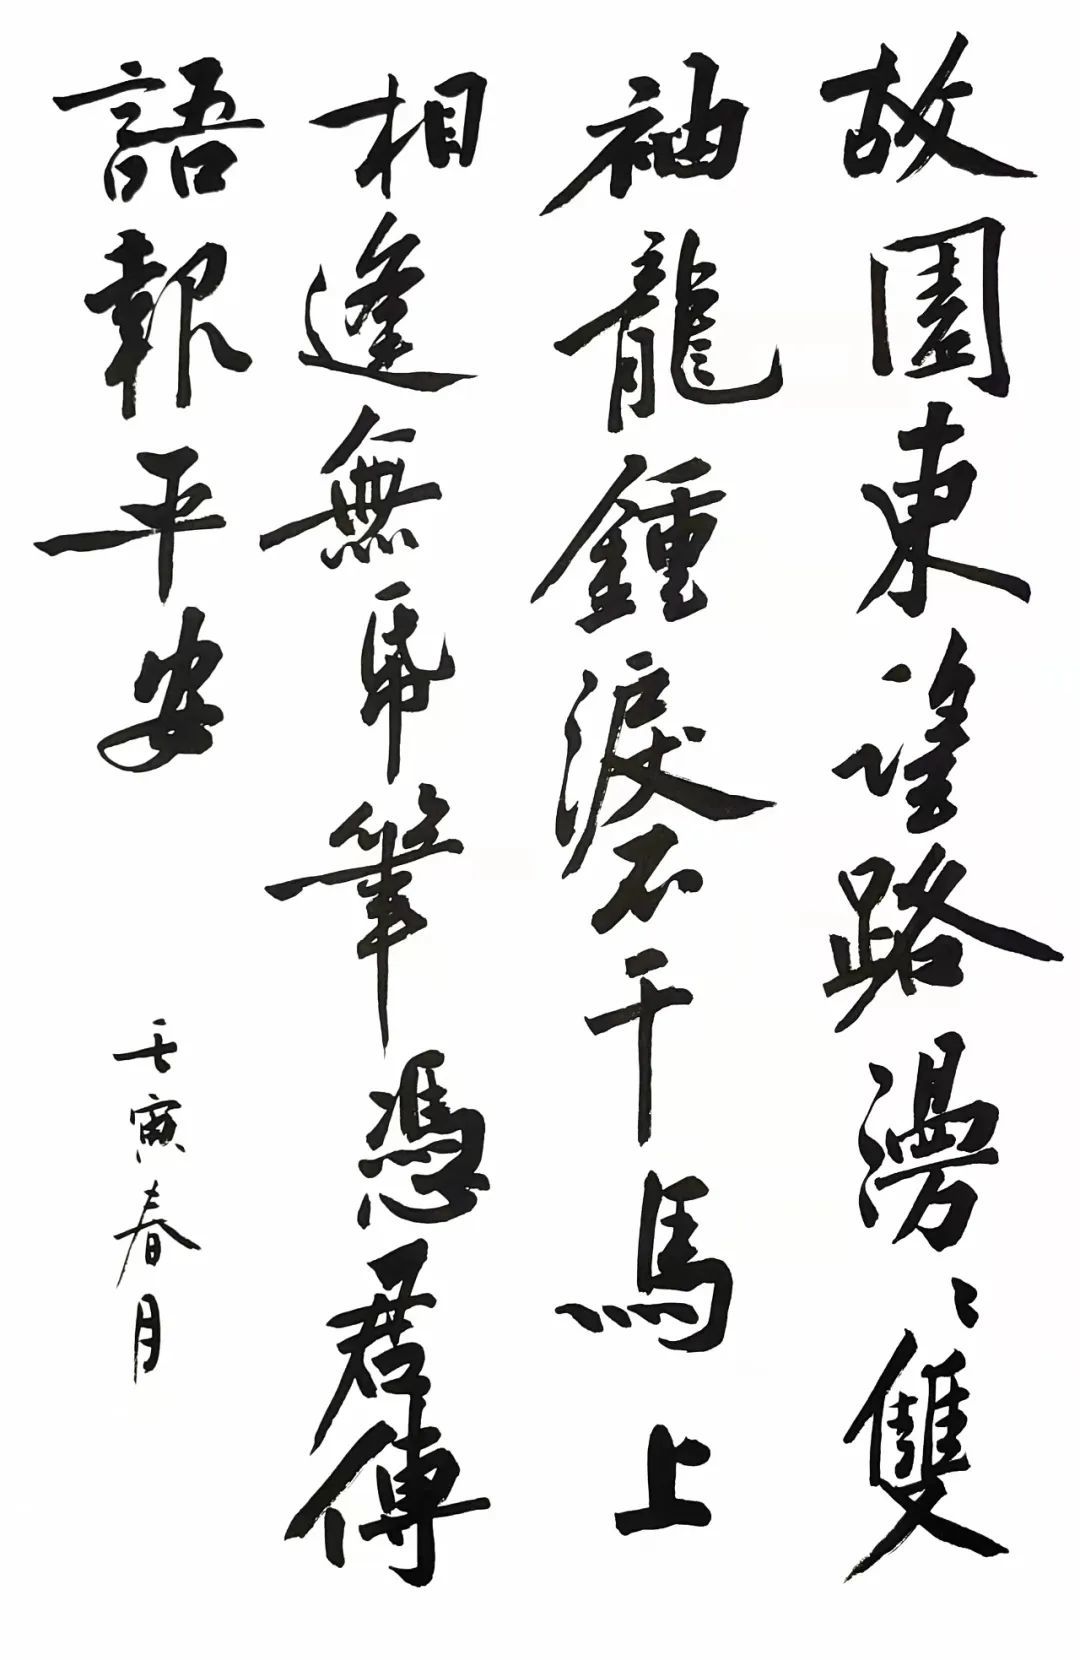 故園東望路漫〻雙
袖龍鍾淚不干馬上
相逢無帋筆憑君傳
語報平安
壬寅春月